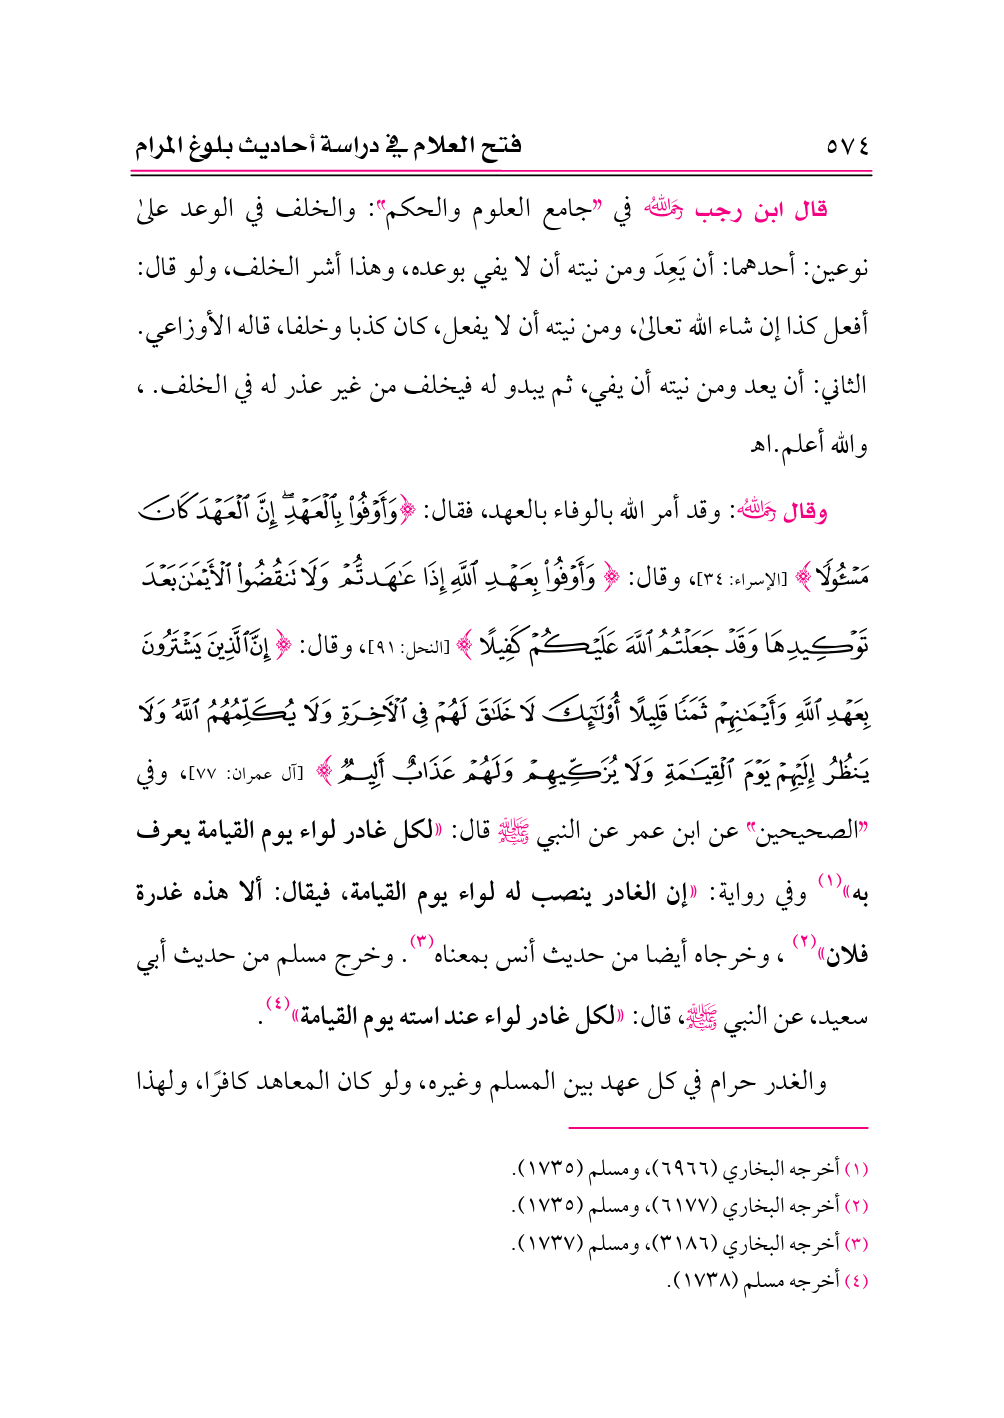 ٥٧٤ فتح العلام في دراسة أحاديث بلوغ المرام
قال ابن رجب رحمه الله في "جامع العلوم والحكم": والخلف في الوعد علىٰ
نوعين: أحدهما: أن يَعِدَ ومن نيته أن لا يفي بوعده، وهذا أشر الخلف، ولو قال:
أفعل كذا إن شاء الله تعالىٰ، ومن نيته أن لا يفعل، كان كذبا وخلفا، قاله الأوزاعي.
الثاني: أن يعد ومن نيته أن يفي، ثم يبدو له فيخلف من غير عذر له في الخلف. ،
والله أعلم.اهـ
وقال رحمه الله: وقد أمر الله بالوفاء بالعهد، فقال: ﴿وَأَوۡفُواْ بِٱلۡعَهۡدِۖ إِنَّ ٱلۡعَهۡدَ كَانَ
مَسۡـُٔولٗا﴾ [الإسراء: ٣٤]، وقال: ﴿ وَأَوۡفُواْ بِعَهۡدِ ٱللَّهِ إِذَا عَٰهَدتُّمۡ وَلَا تَنقُضُواْ ٱلۡأَيۡمَٰنَ بَعۡدَ
تَوۡكِيدِهَا وَقَدۡ جَعَلۡتُمُ ٱللَّهَ عَلَيۡكُمۡ كَفِيلًا ﴾ [النحل: ٩١]، وقال: ﴿ إِنَّ ٱلَّذِينَ يَشۡتَرُونَ
بِعَهۡدِ ٱللَّهِ وَأَيۡمَٰنِهِمۡ ثَمَنٗا قَلِيلًا أُوْلَٰٓئِكَ لَا خَلَٰقَ لَهُمۡ فِي ٱلۡأٓخِرَةِ وَلَا يُكَلِّمُهُمُ ٱللَّهُ وَلَا
يَنظُرُ إِلَيۡهِمۡ يَوۡمَ ٱلۡقِيَٰمَةِ وَلَا يُزَكِّيهِمۡ وَلَهُمۡ عَذَابٌ أَلِيمٞ ﴾ [آل عمران: ٧٧]، وفي
"الصحيحين" عن ابن عمر عن النبي ﷺ قال: «لكل غادر لواء يوم القيامة يعرف
به»(١) وفي رواية: «إن الغادر ينصب له لواء يوم القيامة، فيقال: ألا هذه غدرة
فلان»(٢) ، وخرجاه أيضا من حديث أنس بمعناه(٣). وخرج مسلم من حديث أبي
سعيد، عن النبي ﷺ، قال: «لكل غادر لواء عند استه يوم القيامة»(٤).
والغدر حرام في كل عهد بين المسلم وغيره، ولو كان المعاهد كافرًا، ولهذا
(١) أخرجه البخاري (٦٩٦٦)، ومسلم (١٧٣٥).
(٢) أخرجه البخاري (٦١٧٧)، ومسلم (١٧٣٥).
(٣) أخرجه البخاري (٣١٨٦)، ومسلم (١٧٣٧).
(٤) أخرجه مسلم (١٧٣٨).